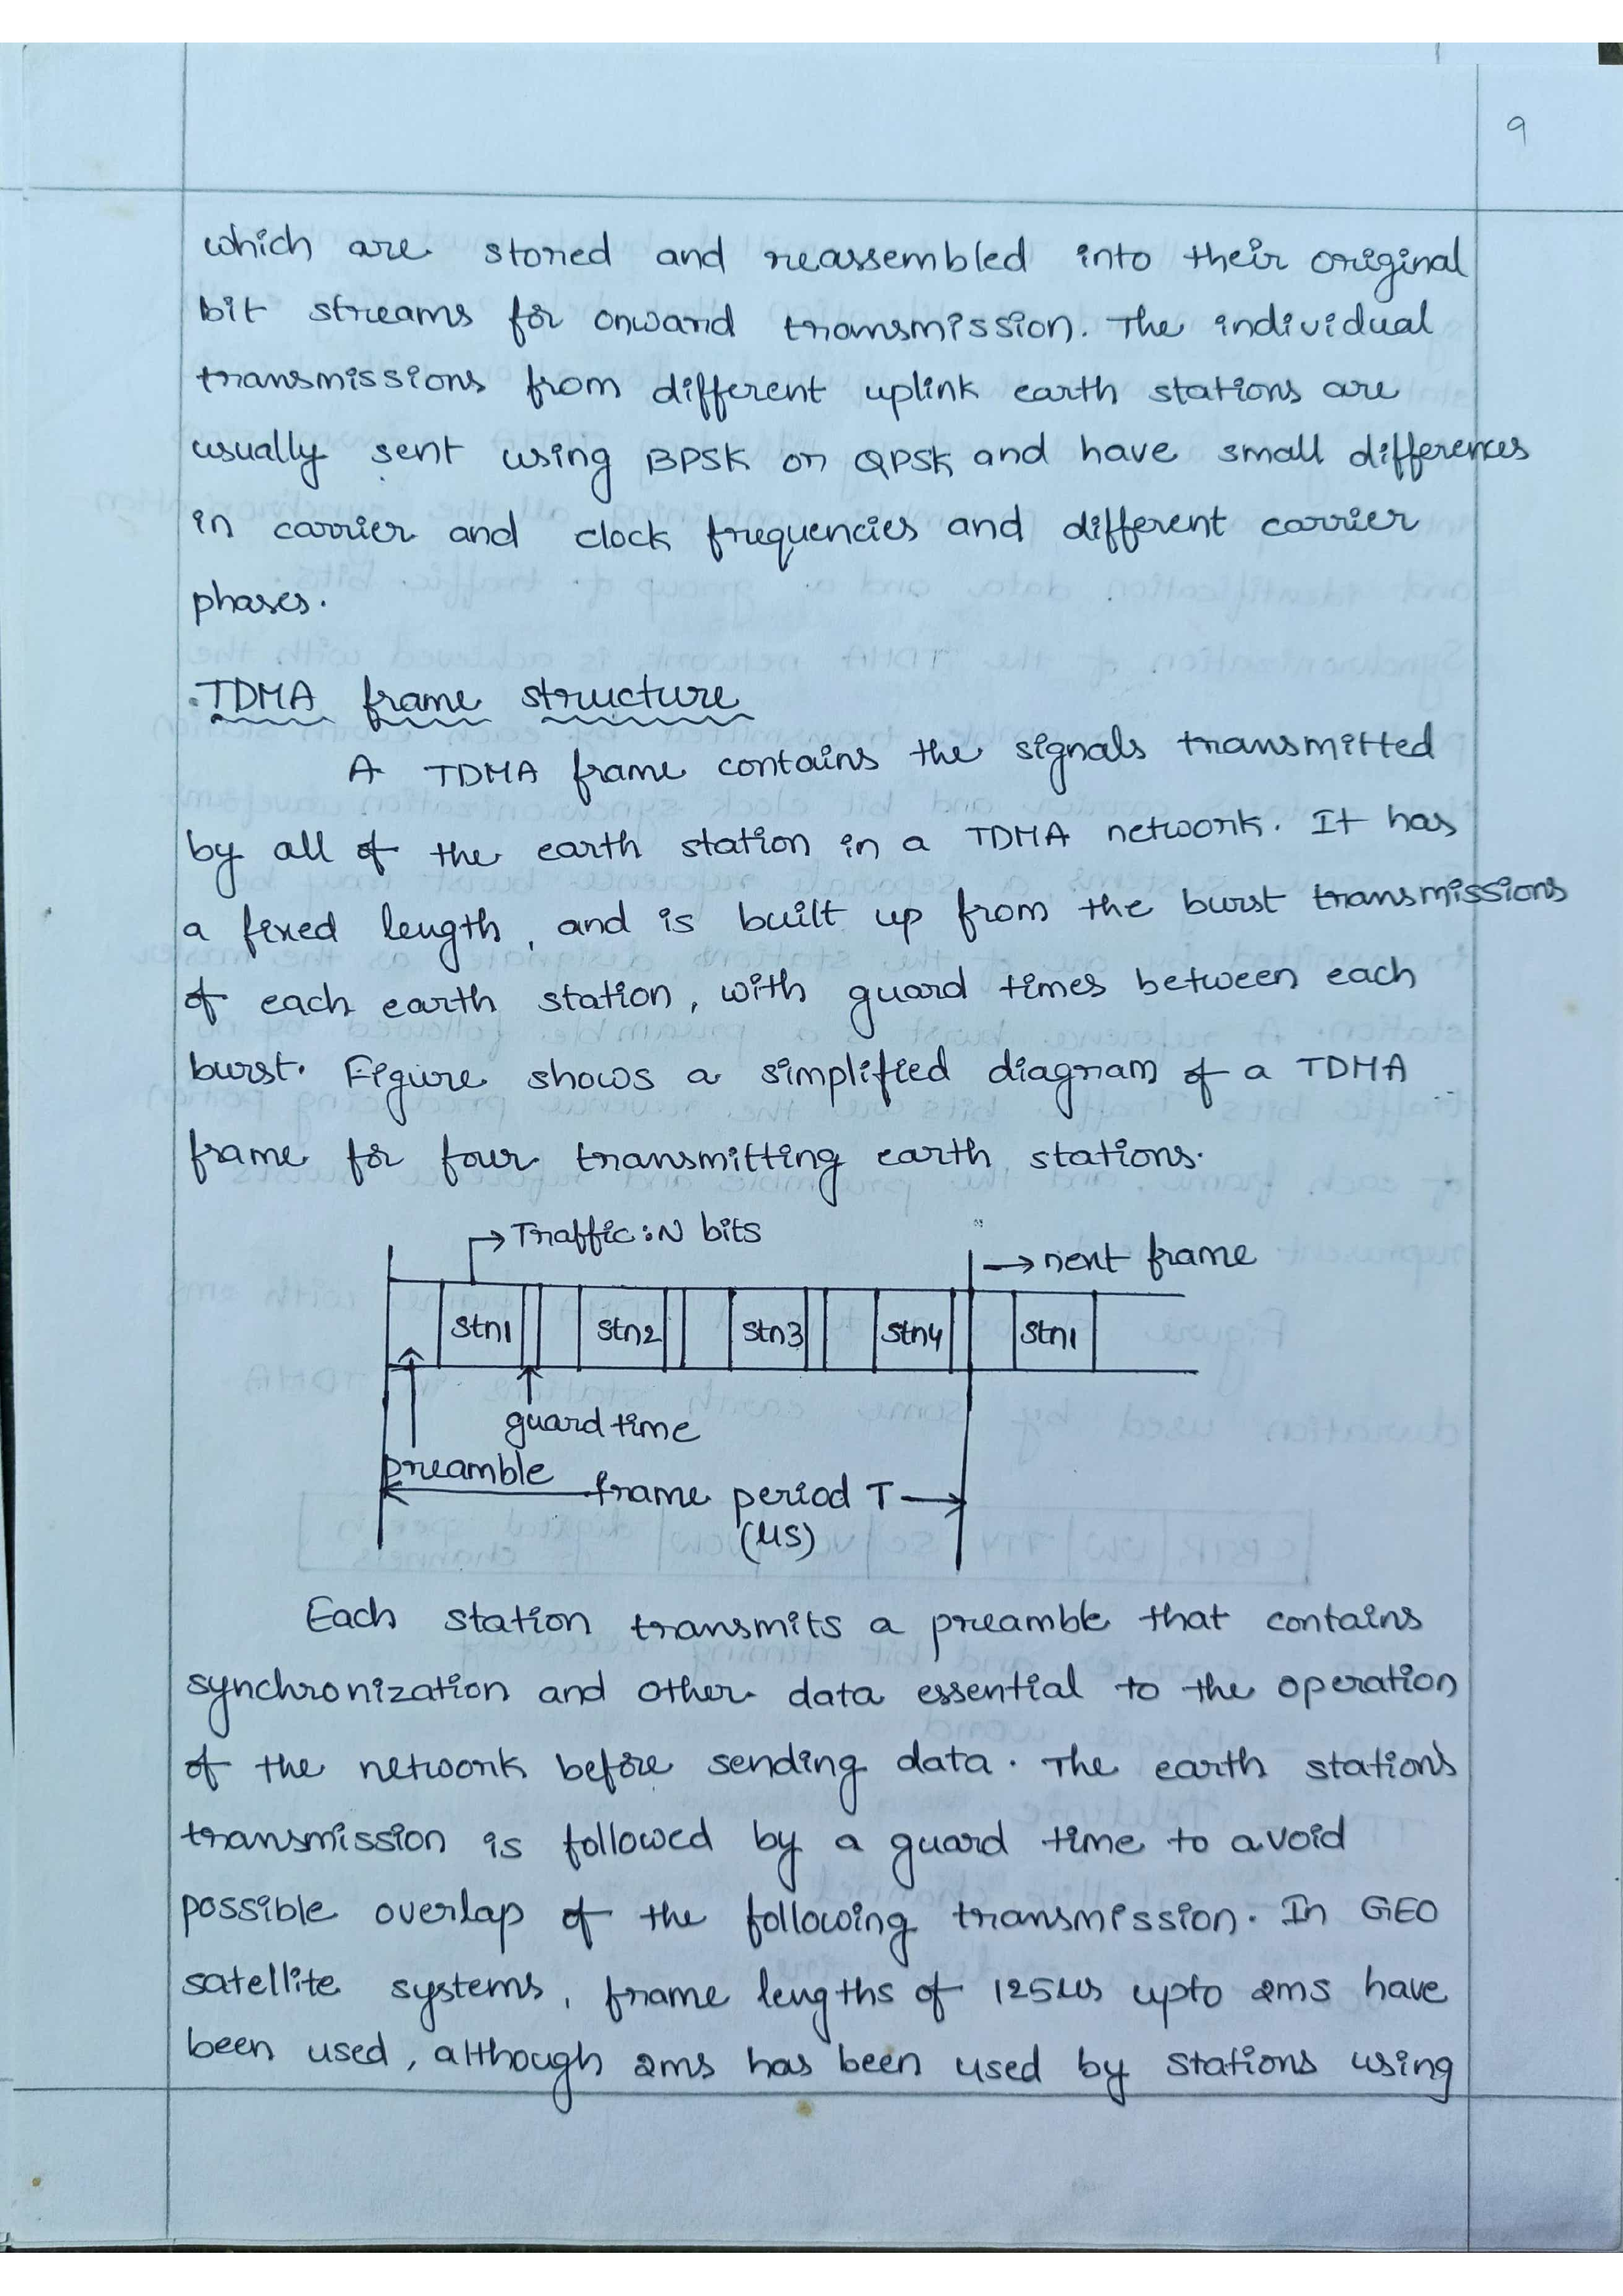 9
which are stored and reassembled into their original
bit streams for onward transmission. The individual
transmissions from different uplink earth stations are
usually sent using BPSK or QPSK and have small differences
in carrier and clock frequencies and different carrier
phases.
TDMA frame structure
A TDMA frame contains the signals transmitted
by all of the earth station in a TDMA network. It has
a fixed length, and is built up from the burst transmissions
of each earth station, with guard times between each
burst. Figure shows a simplified diagram of a TDMA
frame for four transmitting earth stations.
Traffic : N bits
→ next frame
Stn1 Stn2 Stn3 Stn4 Stn1
guard time
preamble
frame period T
(μs)
Each station transmits a preamble that contains
synchronization and other data essential to the operation
of the network before sending data. The earth station's
transmission is followed by a guard time to avoid
possible overlap of the following transmission. In GEO
satellite systems, frame lengths of 125μs upto 2ms have
been used, although 2ms has been used by stations using